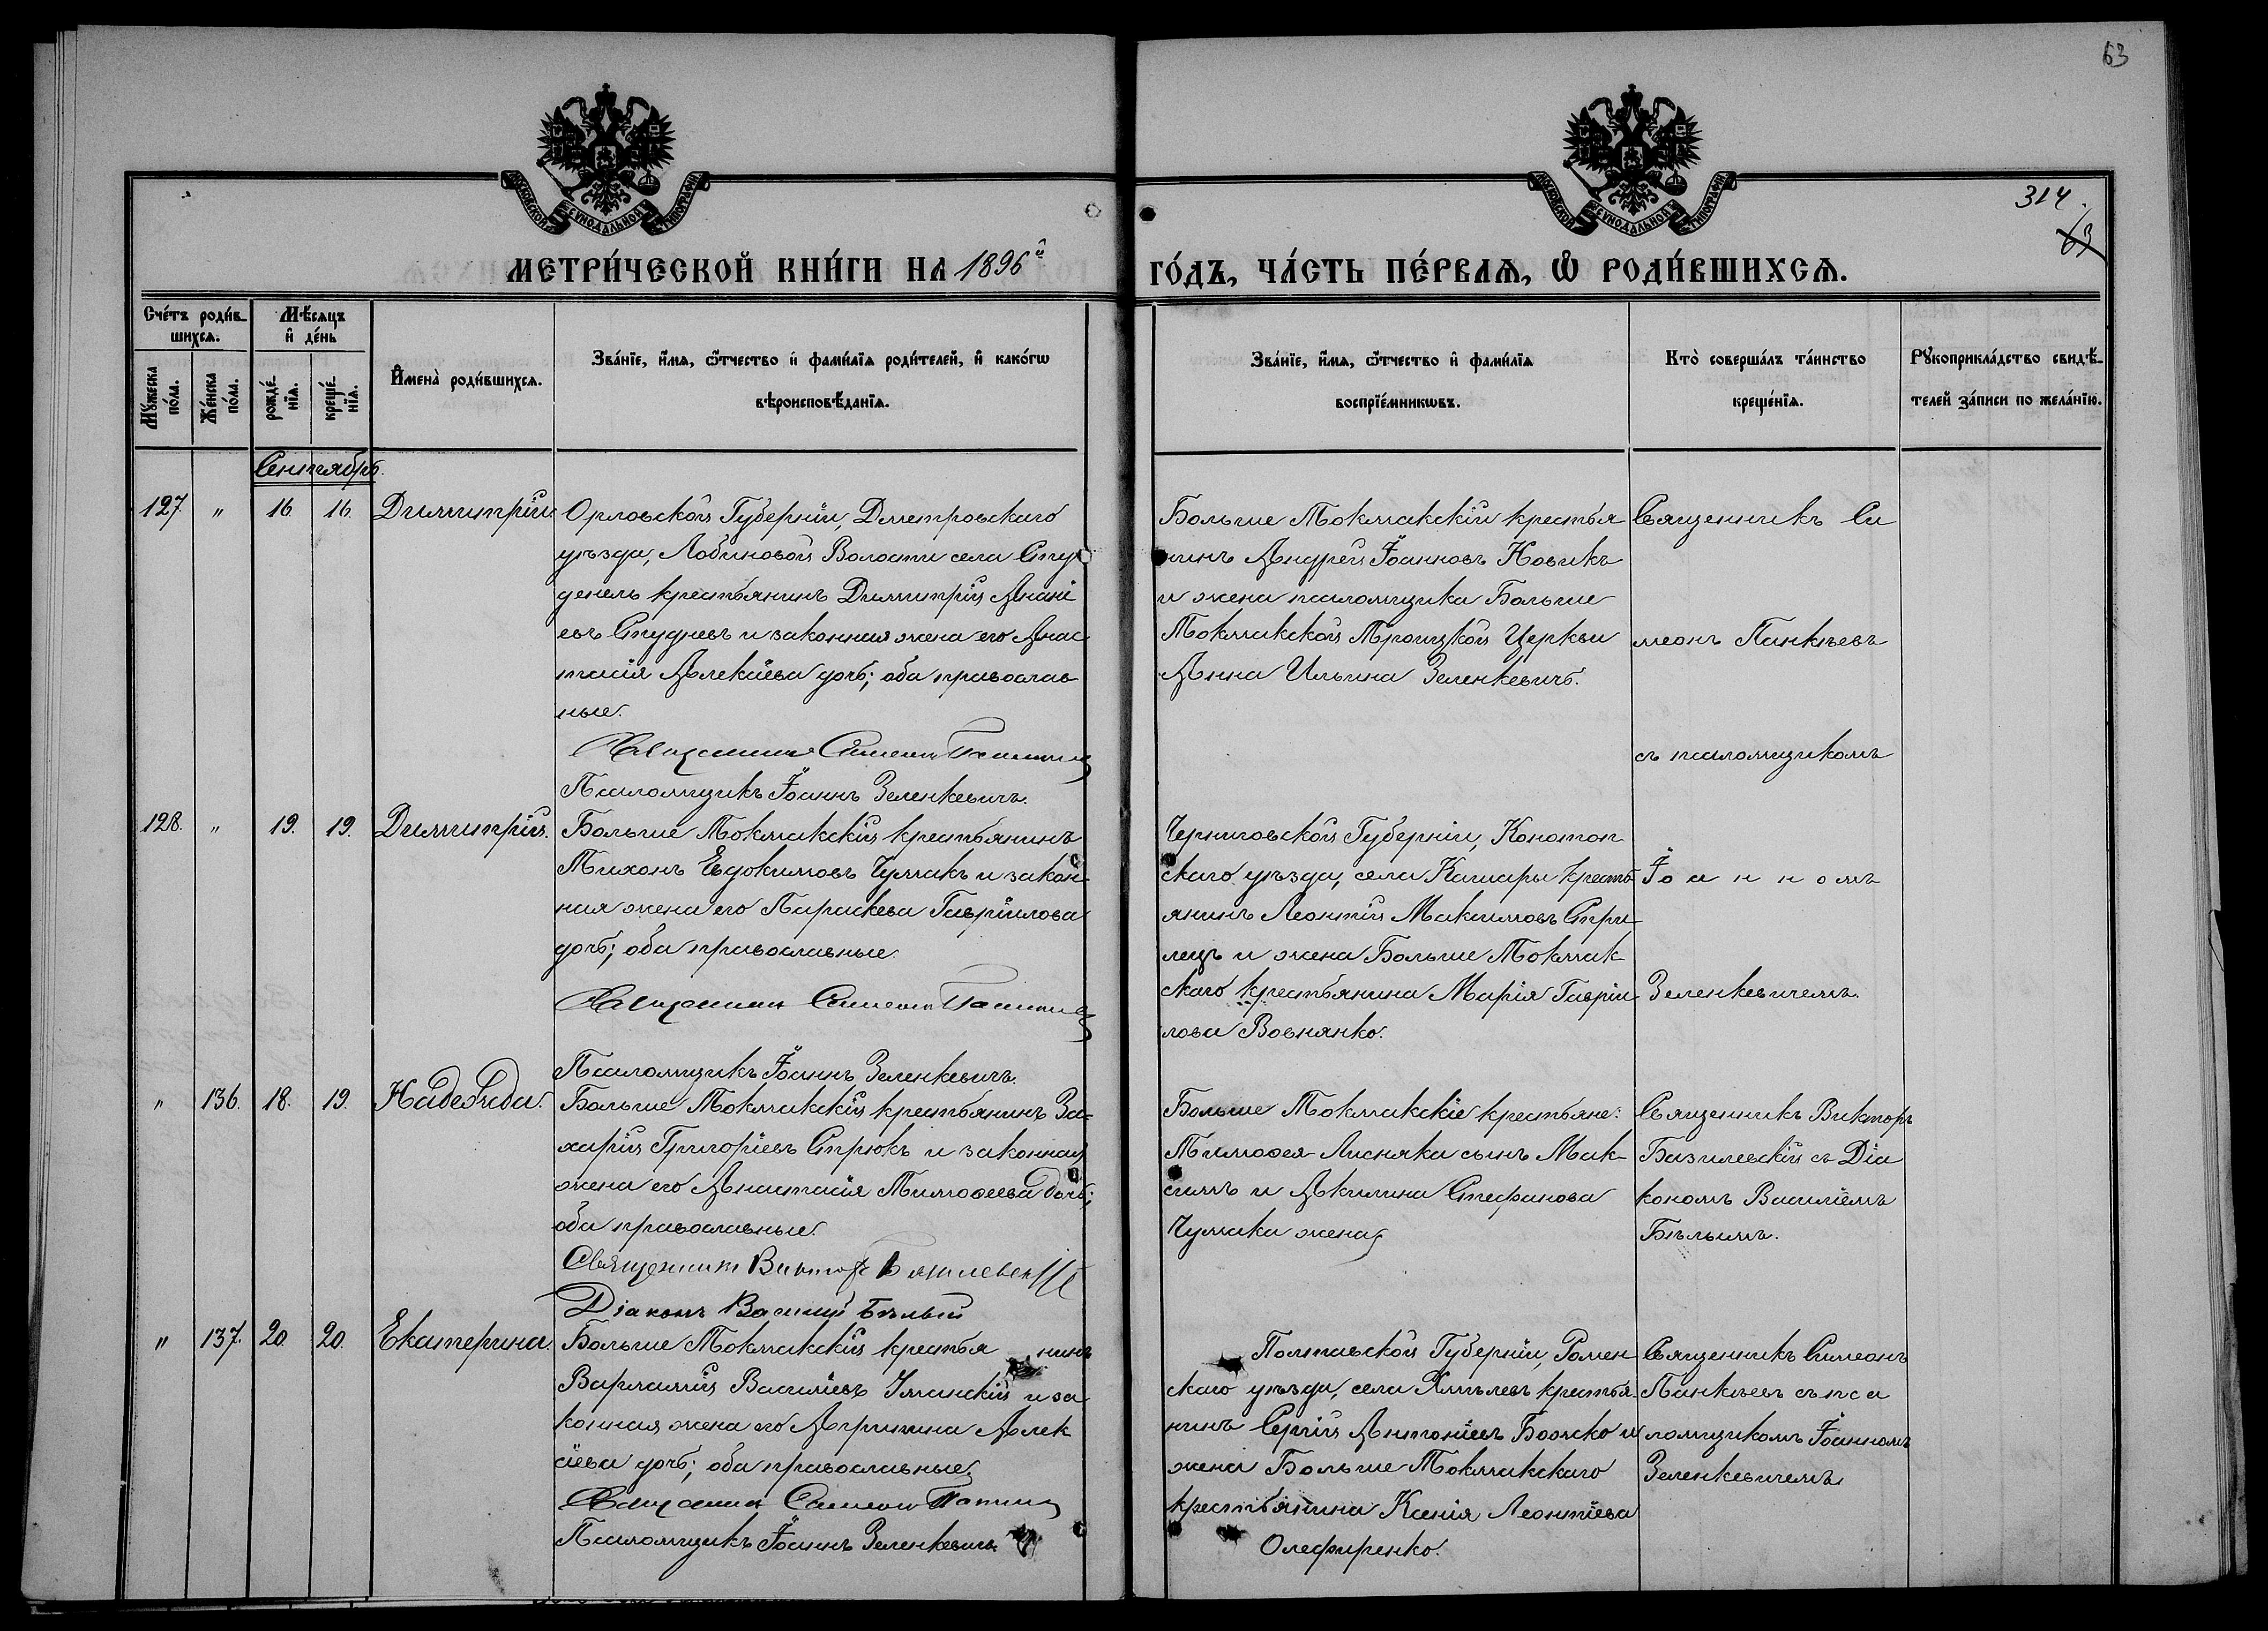 63
314.
63
МОСКОВСКОЙ СѴНОДАЛЬНОЙ ТИПОГРАФІИ
МОСКОВСКОЙ СѴНОДАЛЬНОЙ ТИПОГРАФІИ
МЕТРИ́ЧЕСКОЙ КНИ́ГИ НА 1896й
ГО́ДЪ, ЧА́СТЬ ПЕ́РВАѦ, Ѡ РОДИ́ВШИХСѦ.
Сче́тъ роди́в-
шихсѧ.
Мѣ́сѧцъ
и҆ де́нь
Мꙋ́жеска
по́ла.
Же́нска
по́ла.
рожде́-
нїѧ.
креще́-
нїѧ.
И҆мена̀ роди́вшихсѧ.
Зва́нїе, и҆́мѧ, ѻ҆́тчество и҆ фами́лїѧ роди́телей, и҆ како́гѡ
вѣроисповѣ́данїѧ.
Зва́нїе, и҆́мѧ, ѻ҆́тчество и҆ фами́лїѧ
воспрїе́мникѡвъ.
Кто̀ соверша́лъ та́инство
креще́нїѧ.
Рꙋкоприкла́дство свидѣ́-
телей за́писи по жела́нїю.
Сентябрь.
127. " 16. 16. Димитрій.
Орловской Губерніи, Дметровскаго
уѣзда, Лобиновой Волости села Сту-
денель крестьянинъ Димитрій Анані
евъ Студневъ и законная жена его Анас
тасія Алексіева дочь; оба православ
ные.
Священникъ Симеонъ Панкѣев
Псаломщикъ Іоаннъ Зеленкевичъ.
Больше Токмакскій крестья
нинъ Андрей Іоанновъ Новикъ
и жена псаломщика Больше
Токмакской Троицкой Церкви
Анна Ильина Зеленкевичъ.
Священникъ Си
меонъ Панкѣевъ
съ псаломщикомъ
128. " 19. 19. Димитрій.
Больше Токмакскій крестьянинъ
Тихонъ Евдокимовъ Чумакъ и закон-
ная жена его Параскева Гавріилова
дочь; оба православные.
Священникъ Симеонъ Панкѣев
Псаломщикъ Іоаннъ Зеленкевичъ.
Черниговской Губерніи, Конотоп
скаго уѣзда, села Кашары кресть-
янинъ Леонтій Максимовъ Стри-
лецъ и жена Больше Токмак-
скаго крестьянина Марія Гавріи
лова Вовнянко.
Іоанномъ
Зеленкевичемъ.
" 136. 18. 19. Надежда.
Больше Токмакскій крестьянинъ За-
харій Григоріевъ Стрюкъ и законная
жена его Анастасія Тимоѳеева дочь;
оба православные.
Священникъ Викторъ Базилевскій
Діаконъ Василій Бѣлый
Больше Токмакскіе крестьяне:
Тимоѳея Лисняка сынъ Мак-
симъ и Акилина Стефанова
Чумака жена
Священникъ Викторъ
Базилевскій съ Діа
кономъ Василіемъ
Бѣлымъ.
" 137. 20. 20. Екатерина.
Больше Токмакскій крестья нинъ
Варлаамій Василіевъ Уманскій и за
конная жена его Агрипина Алек
сіева дочь; оба православные.
Священникъ Симеонъ Панкѣев
Псаломщикъ Іоаннъ Зеленкевичъ
Полтавской Губерніи, Ромен
скаго уѣзда, села Хмѣлевъ крестья-
нинъ Сергій Антоніевъ и
жена Больше Токмакскаго
крестьянина Ксенія Леонтіева
Олефиренко.
Священникъ Симеонъ
Панкѣевъ съ пса
ломщикомъ Іоанномъ
Зеленкевичемъ.